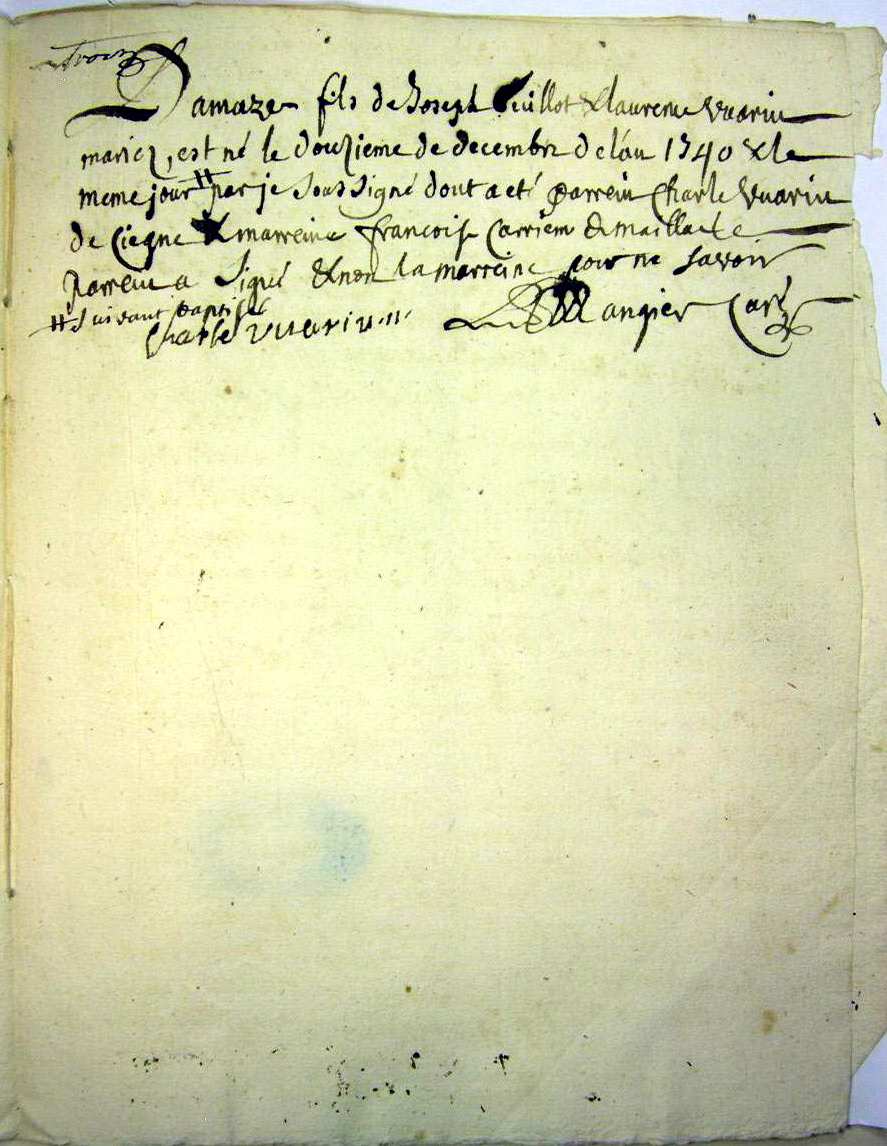 Damaze fils de Joseph Cuillot & laurence Vuarin
mariez, est né le douzieme de decembre de l'an 1740 & le
meme jour # par je sous signé dont a eté parrein Charle Vuarin
de & marreine francoise de
parrein a signé & non la marreine pour ne savoir
# suivant baptisé
Charle vuarin Mangier Curé